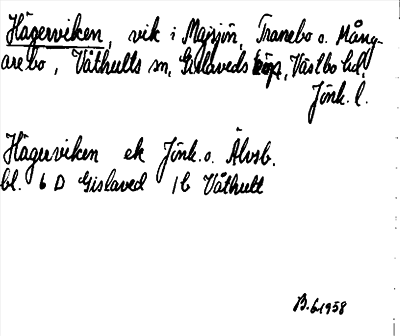 Hägerviken, vik i Majsjön, Tranebo o. Mång-
arebo, Våthults sn, Gislaveds köp, Västbo hd,
Jönk. l.
Hägerviken ek Jönk. o. Älvsb.
bl. 6 D Gislaved 1b Våthult
B. 6 1958